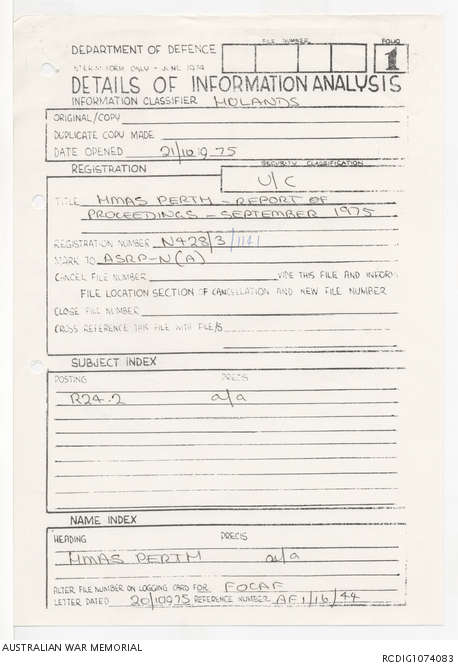 DEPARTMENT OF DEFENCE
FILE NUMBER
FOLIO
1
INTERIM FORM ONLY - JUNE 1974
DETAILS OF INFORMATION ANALYSIS
INFORMATION CLASSIFIER HOLANDS
ORIGINAL/COPY
DUPLICATE COPY MADE
DATE OPENED 21/10/1975
REGISTRATION
SECURITY CLASSIFICATION
U/C
TITLE HMAS PERTH - REPORT OF
PROCEEDINGS - SEPTEMBER 1975
REGISTRATION NUMBER N428/3/1141
MARK TO ASRP-N(A)
CANCEL FILE NUMBER VIDE THIS FILE AND INFORM
FILE LOCATION SECTION OF CANCELLATION AND NEW FILE NUMBER
CLOSE FILE NUMBER
CROSS REFERENCE THIS FILE WITH FILE/S
SUBJECT INDEX
POSTING PRECIS
R24.2 a/a
NAME INDEX
HEADING PRECIS
HMAS PERTH a/a
ALTER FILE NUMBER ON LOGGING CARD FOR FOCAF
LETTER DATED 20/10/75 REFERENCE NUMBER AF1/16/44
AUSTRALIAN WAR MEMORIAL
RCDIG1074083